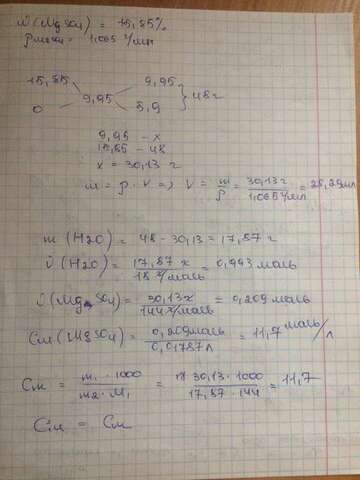 ω(MgSO4) = 15,85%
ρ = 1,065 г/мл
15,85 9,95
9,95 } 48 г
0 5,9
9,95 – x
15,85 – 48
x = 30,13 г
m = ρ · V => V = m/ρ = 30,13 г/1,065 г/мл = 28,29 мл
m (H2O) = 48 - 30,13 = 17,87 г
ν (H2O) = 17,87 г/18 г/моль = 0,993 моль
ν (MgSO4) = 30,13 г/144 г/моль = 0,209 моль
Cм (MgSO4) = 0,209 моль/0,0178 л = 11,7 моль/л
Cм = m1 · 1000/m2 · M1 = 30,13 · 1000/17,87 · 144 = 11,7
Cм = Cм